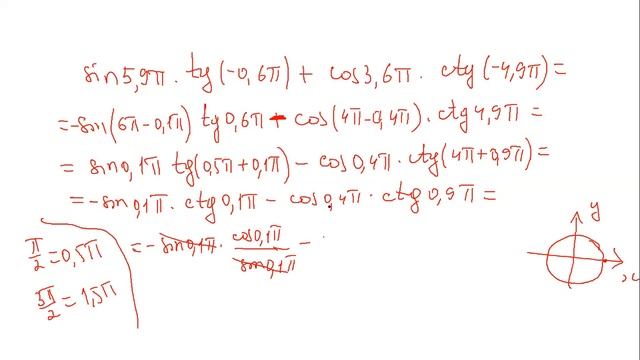 sin5,9π · tg(-0,6π) + cos3,6π · ctg(-4,9π) =
= -sin(6π-0,1π) tg0,6π - cos(4π-0,4π) · ctg4,9π =
= sin0,1π tg(0,5π+0,1π) - cos0,4π · ctg(4π+0,9π) =
= -sin0,1π · ctg0,1π - cos0,4π · ctg0,9π =
= -sin0,1π · cos0,1π/sin0,1π -
π/2 = 0,5π
3π/2 = 1,5π
y
x